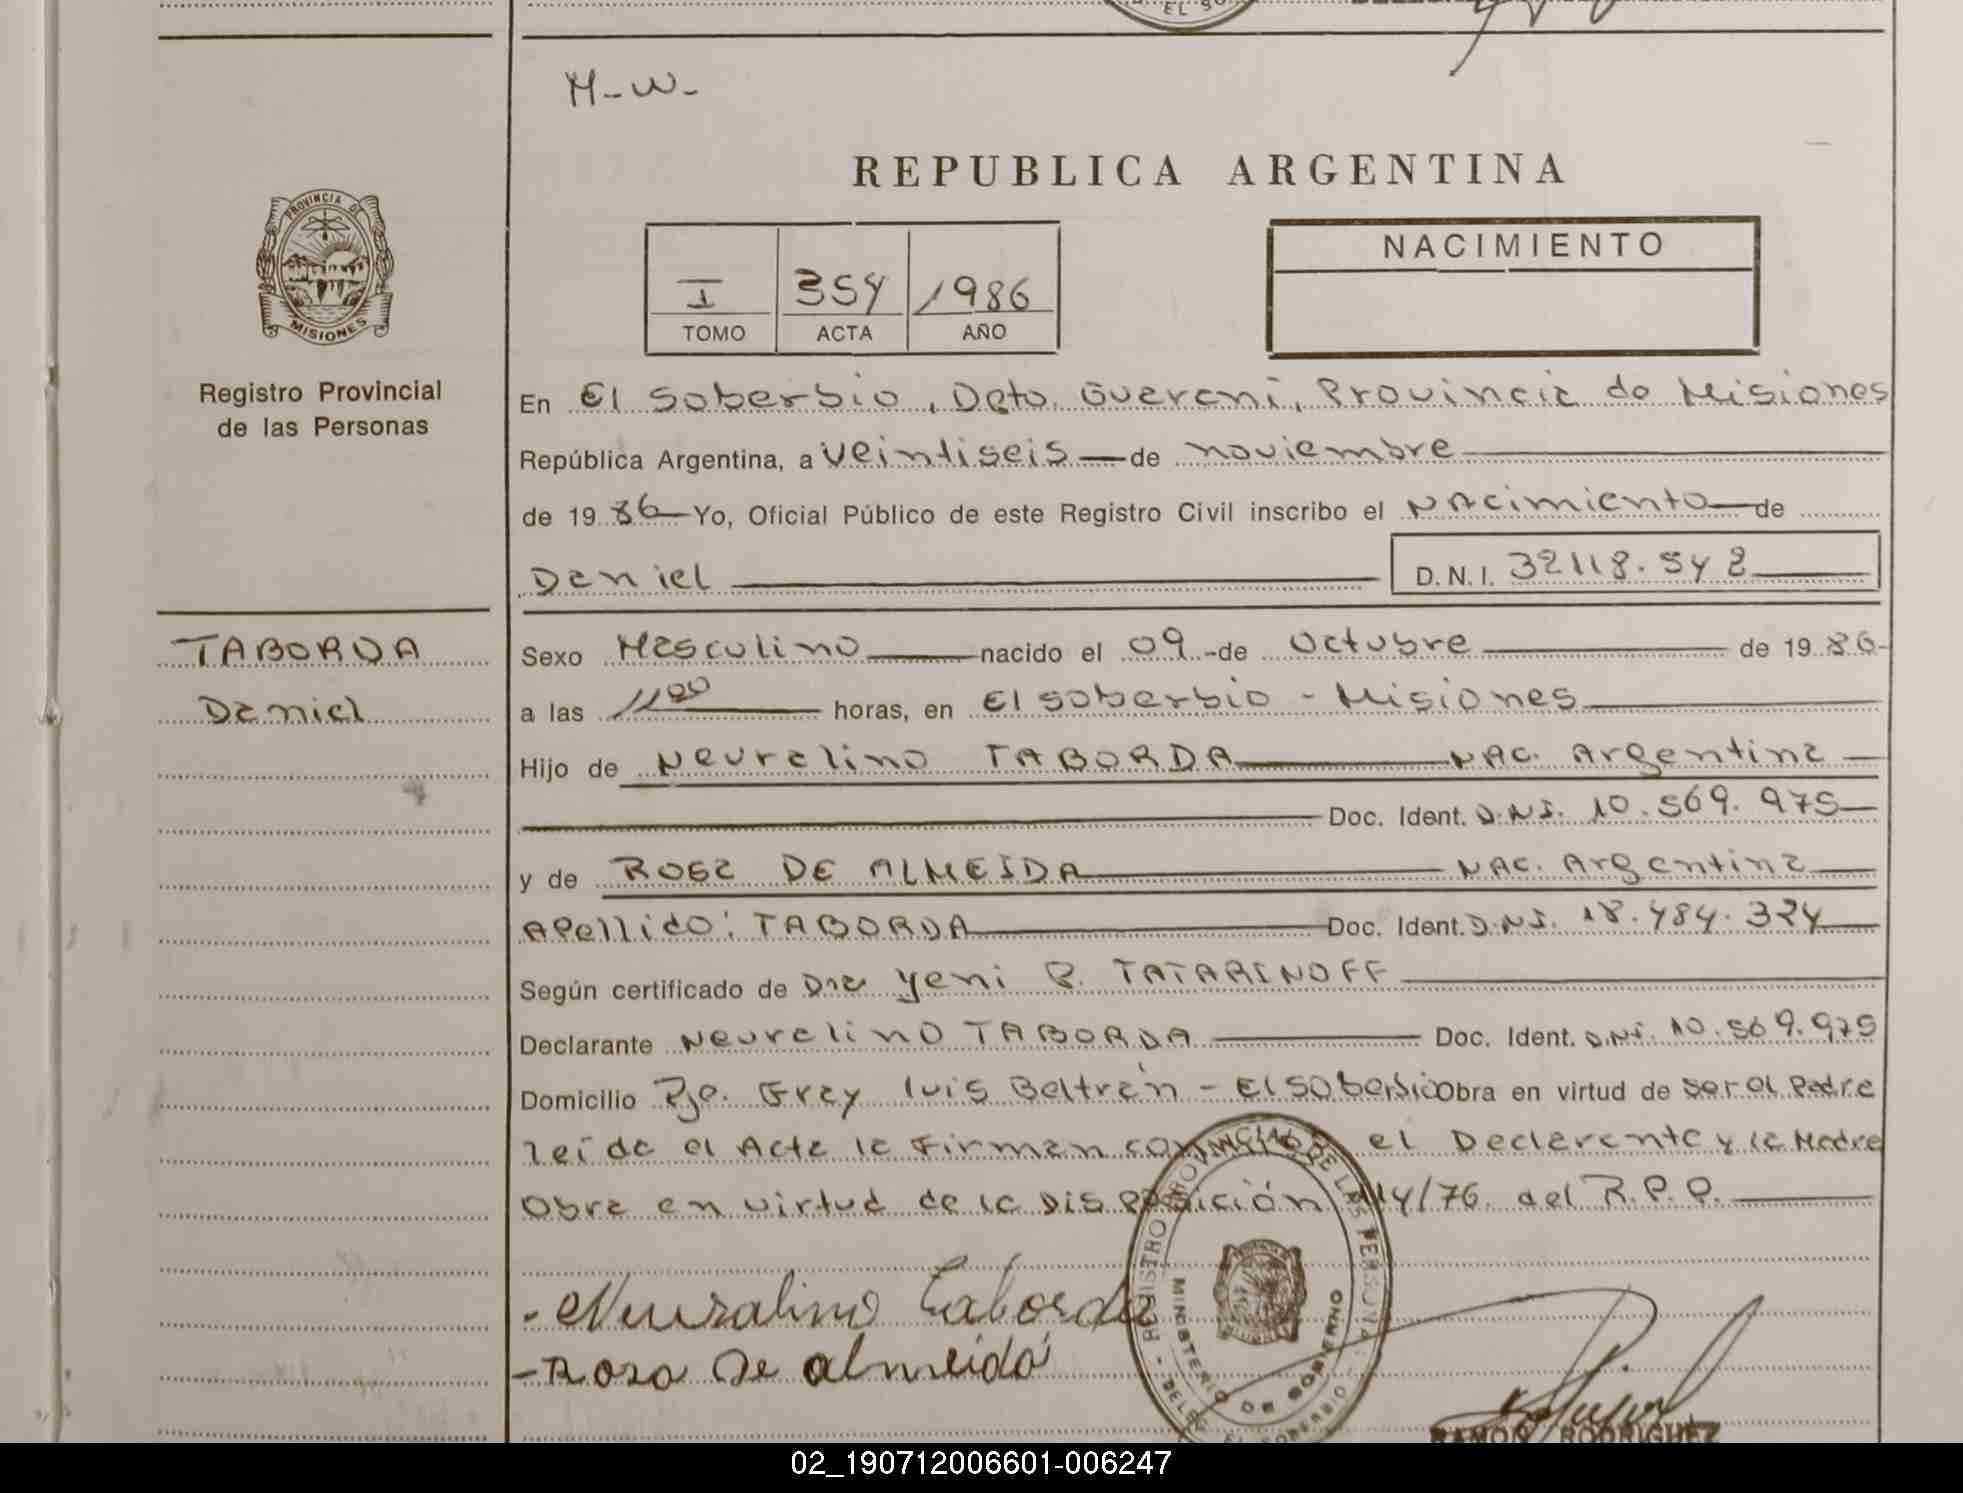 EL SO
M-W-
REPUBLICA ARGENTINA
PROVINCIA DE
MISIONES
I 354 1986
TOMO ACTA AÑO
NACIMIENTO
Registro Provincial
de las Personas
En El Soberbio, Dpto. Guarani, Provincia de Misiones
República Argentina, a veintiseis — de noviembre
de 19 86 Yo, Oficial Público de este Registro Civil inscribo el NAcimiento de
Daniel D.N.I. 32118.542
TABORDA
Daniel
Sexo Masculino nacido el 09 - de Octubre de 19 86
a las 1100 horas, en El Soberbio - Misiones
Hijo de Neuralino TABORDA NAC. Argentina
Doc. Ident. D.N.I. 10.569.975
y de ROSa DE ALMEIDA NAC. Argentina
APellido: TABORDA Doc. Ident. D.N.I. 18.484.324
Según certificado de Dra Yeni TATARINOFF
Declarante Neuralino TABORDA Doc. Ident. D.N.I. 10.569.975
Domicilio Pje. Fray luis Beltrán - El Soberbio Obra en virtud de ser el Padre
leída el Acta la Firman el Declarante y la Madre
Obra en virtud de la Disposición 114/76 del R.P.P.
- Neuralino Taborda
- Rosa De almeida
REGISTRO PROVINCIAL DE LAS PERSONAS
MINISTERIO DE GOBIERNO
EL SOBERBIO
RAMON RODRIGUEZ
02_190712006601-006247